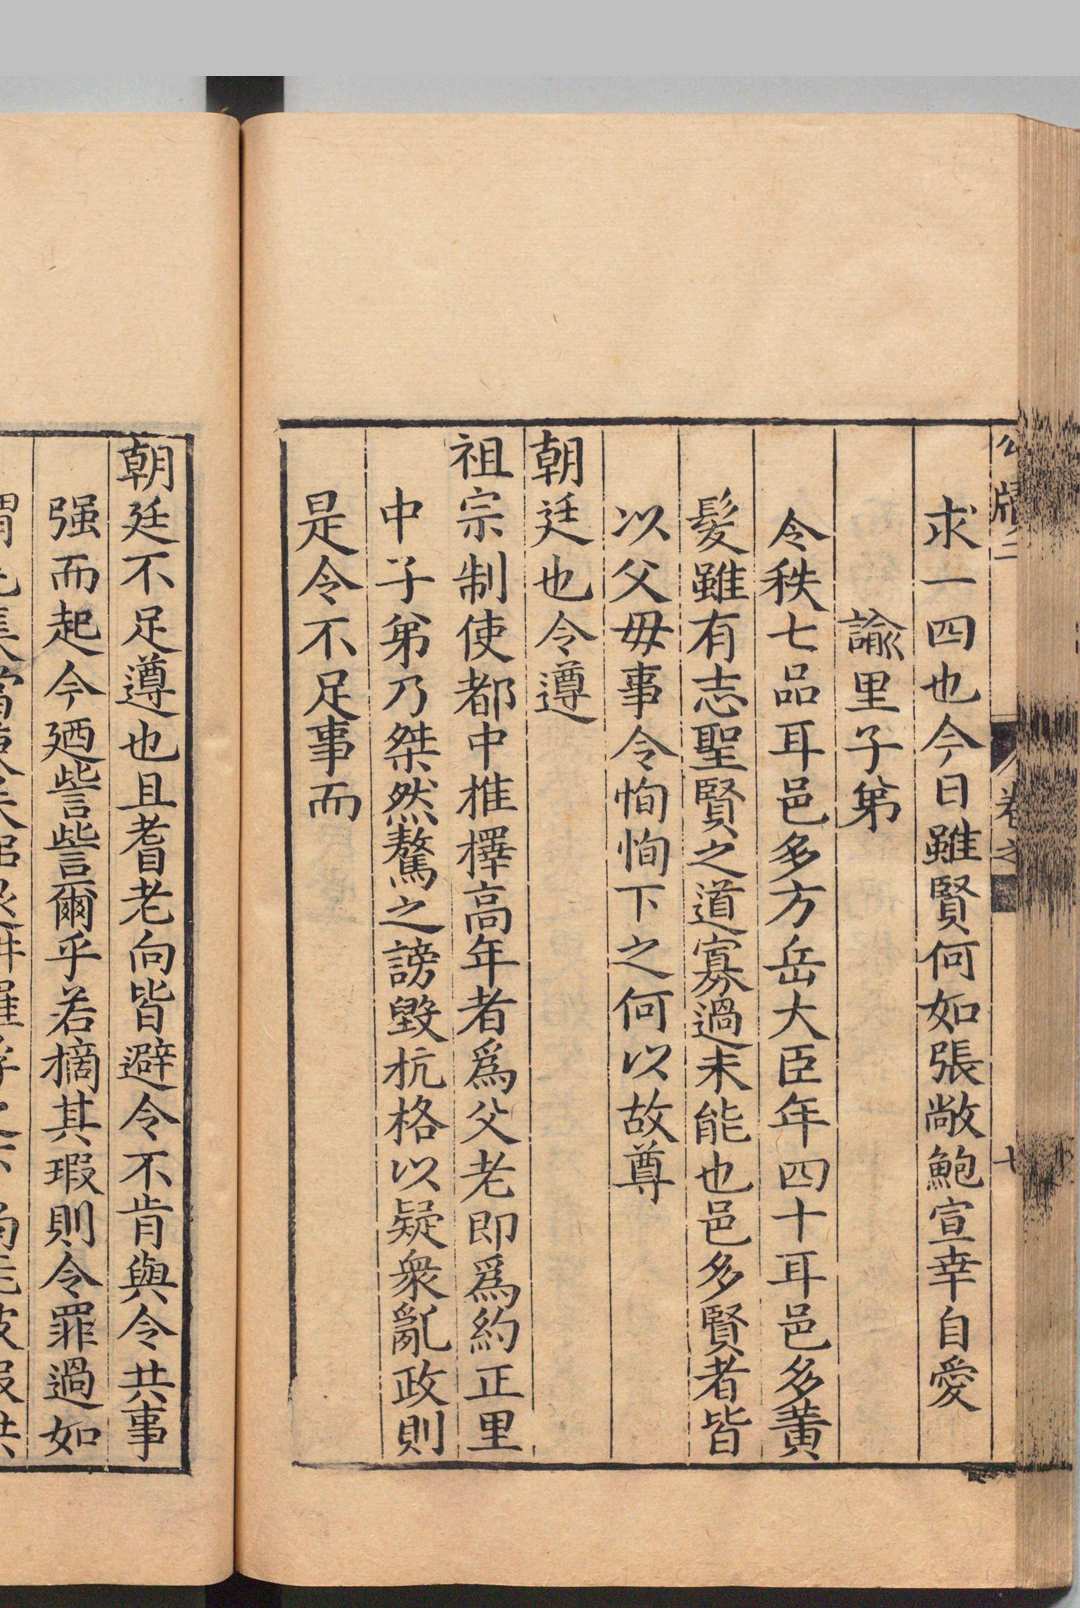 求一四也今日雖賢何如張敞鮑宣幸自愛
諭里子弟
令秩七品耳邑多方岳大臣年四十耳邑多黃
髮雖有志聖賢之道寡過未能也邑多賢者皆
以父毋事令恂恂下之何以故尊
朝廷也令遵
祖宗制使都中推擇高年者爲父老即爲約正里
中子弟乃桀然驁之謗毀抗格以疑衆亂政則
是令不足事而
朝廷不足遵也且耆老向皆避令不肯與令共事
强而起今廼訾訾爾乎若摘其瑕則令罪過如